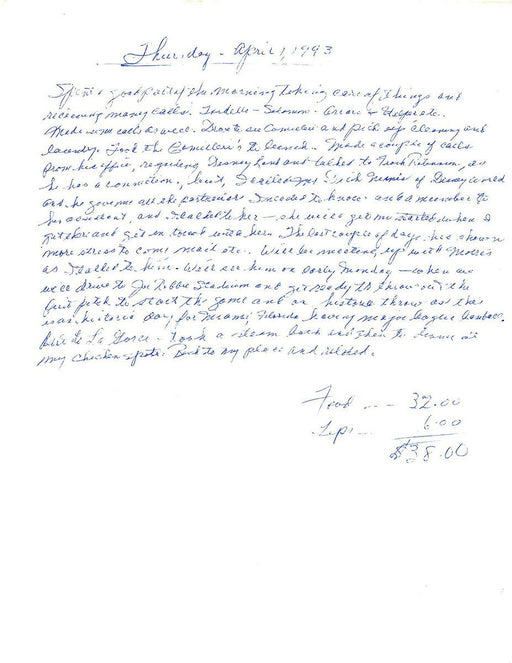 Thursday - April 1, 1993
Spent a good part of the morning taking care of things and
receiving many calls.
Made some calls as well. Drove to see Camilli and pick up cleaning and
laundry. Took the Camilleri's to lunch. Made a couple of calls
from his office, regarding Disney land and talked to Robinson, as
he has a connection, but, I called Dick of Disney world
and he gave me all the particulars I needed to know and a number to
his assistant, and I talked to her - she will get me started when I
get there and get in touch with her. The last couple of days has shown
more stress to come mail etc. Will be meeting up with Morris
as I talked to him. Will see him on early Monday - when we
will drive to Joe Robbie Stadium and get ready to throw out the
first pitch to start the game and on historic throw as this
is a historic day, for Miami, Florida having major league baseball.
La Gorce - took a steam bath and then to dinner at
my chicken spot. Back to my place and relaxed.
Food --- 32.00
Tips --- 6.00
$38.00